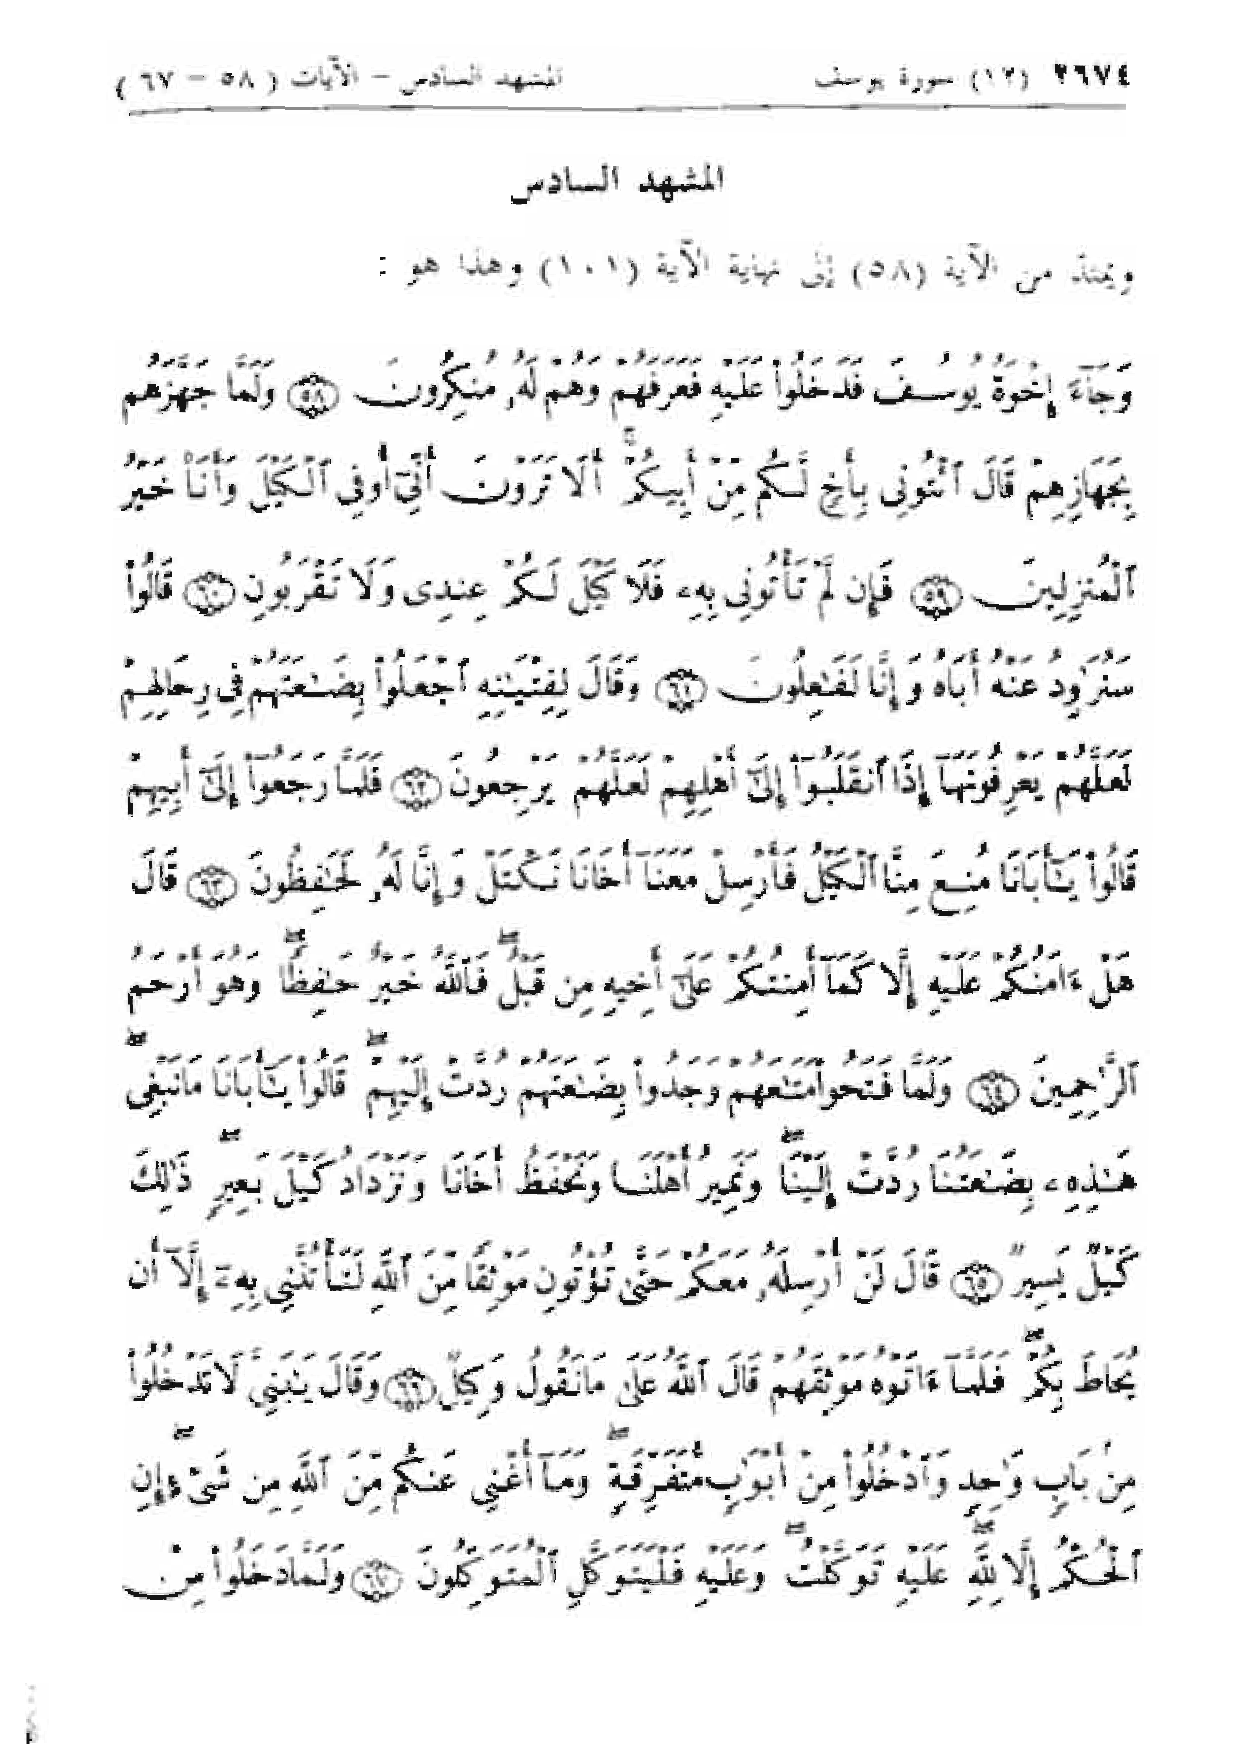 ٢٦٧٤ (١٢) سورة يوسف المشهد السادس - الآيات ( ٥٨ - ٦٧ )
المشهد السادس
ويمتد من الآية (٥٨) إلى نهاية الآية (١٠١) وهذا هو :
وَجَآءَ إِخْوَةُ يُوسُفَ فَدَخَلُوا۟ عَلَيْهِ فَعَرَفَهُمْ وَهُمْ لَهُۥ مُنكِرُونَ ﴿٥٨﴾ وَلَمَّا جَهَّزَهُم
بِجَهَازِهِمْ قَالَ ٱئْتُونِى بِأَخٍ لَّكُم مِّنْ أَبِيكُمْ ۚ أَلَا تَرَوْنَ أَنِّىٓ أُوفِى ٱلْكَيْلَ وَأَنَا۠ خَيْرُ
ٱلْمُنزِلِينَ ﴿٥٩﴾ فَإِن لَّمْ تَأْتُونِى بِهِۦ فَلَا كَيْلَ لَكُمْ عِندِى وَلَا تَقْرَبُونِ ﴿٦٠﴾ قَالُوا۟
سَنُرَٰوِدُ عَنْهُ أَبَاهُ وَإِنَّا لَفَـٰعِلُونَ ﴿٦١﴾ وَقَالَ لِفِتْيَـٰنِهِ ٱجْعَلُوا۟ بِضَـٰعَتَهُمْ فِى رِحَالِهِمْ
لَعَلَّهُمْ يَعْرِفُونَهَآ إِذَا ٱنقَلَبُوٓا۟ إِلَىٰٓ أَهْلِهِمْ لَعَلَّهُمْ يَرْجِعُونَ ﴿٦٢﴾ فَلَمَّا رَجَعُوٓا۟ إِلَىٰٓ أَبِيهِمْ
قَالُوا۟ يَـٰٓأَبَانَا مُنِعَ مِنَّا ٱلْكَيْلُ فَأَرْسِلْ مَعَنَآ أَخَانَا نَكْتَلْ وَإِنَّا لَهُۥ لَحَـٰفِظُونَ ﴿٦٣﴾ قَالَ
هَلْ ءَامَنُكُمْ عَلَيْهِ إِلَّا كَمَآ أَمِنتُكُمْ عَلَىٰٓ أَخِيهِ مِن قَبْلُ ۖ فَٱللَّهُ خَيْرٌ حَـٰفِظًا ۖ وَهُوَ أَرْحَمُ
ٱلرَّٰحِمِينَ ﴿٦٤﴾ وَلَمَّا فَتَحُوا۟ مَتَـٰعَهُمْ وَجَدُوا۟ بِضَـٰعَتَهُمْ رُدَّتْ إِلَيْهِمْ ۖ قَالُوا۟ يَـٰٓأَبَانَا مَا نَبْغِى ۖ
هَـٰذِهِۦ بِضَـٰعَتُنَا رُدَّتْ إِلَيْنَا ۖ وَنَمِيرُ أَهْلَنَا وَنَحْفَظُ أَخَانَا وَنَزْدَادُ كَيْلَ بَعِيرٍ ۖ ذَٰلِكَ
كَيْلٌ يَسِيرٌ ﴿٦٥﴾ قَالَ لَنْ أُرْسِلَهُۥ مَعَكُمْ حَتَّىٰ تُؤْتُونِ مَوْثِقًا مِّنَ ٱللَّهِ لَتَأْتُنَّنِى بِهِۦٓ إِلَّآ أَن
يُحَاطَ بِكُمْ ۖ فَلَمَّآ ءَاتَوْهُ مَوْثِقَهُمْ قَالَ ٱللَّهُ عَلَىٰ مَا نَقُولُ وَكِيلٌ ﴿٦٦﴾ وَقَالَ يَـٰبَنِىَّ لَا تَدْخُلُوا۟
مِنۢ بَابٍ وَٰحِدٍ وَٱدْخُلُوا۟ مِنْ أَبْوَٰبٍ مُّتَفَرِّقَةٍ ۖ وَمَآ أُغْنِى عَنكُم مِّنَ ٱللَّهِ مِن شَىْءٍ ۖ إِنِ
ٱلْحُكْمُ إِلَّا لِلَّهِ ۖ عَلَيْهِ تَوَكَّلْتُ ۖ وَعَلَيْهِ فَلْيَتَوَكَّلِ ٱلْمُتَوَكِّلُونَ ﴿٦٧﴾ وَلَمَّا دَخَلُوا۟ مِنْ